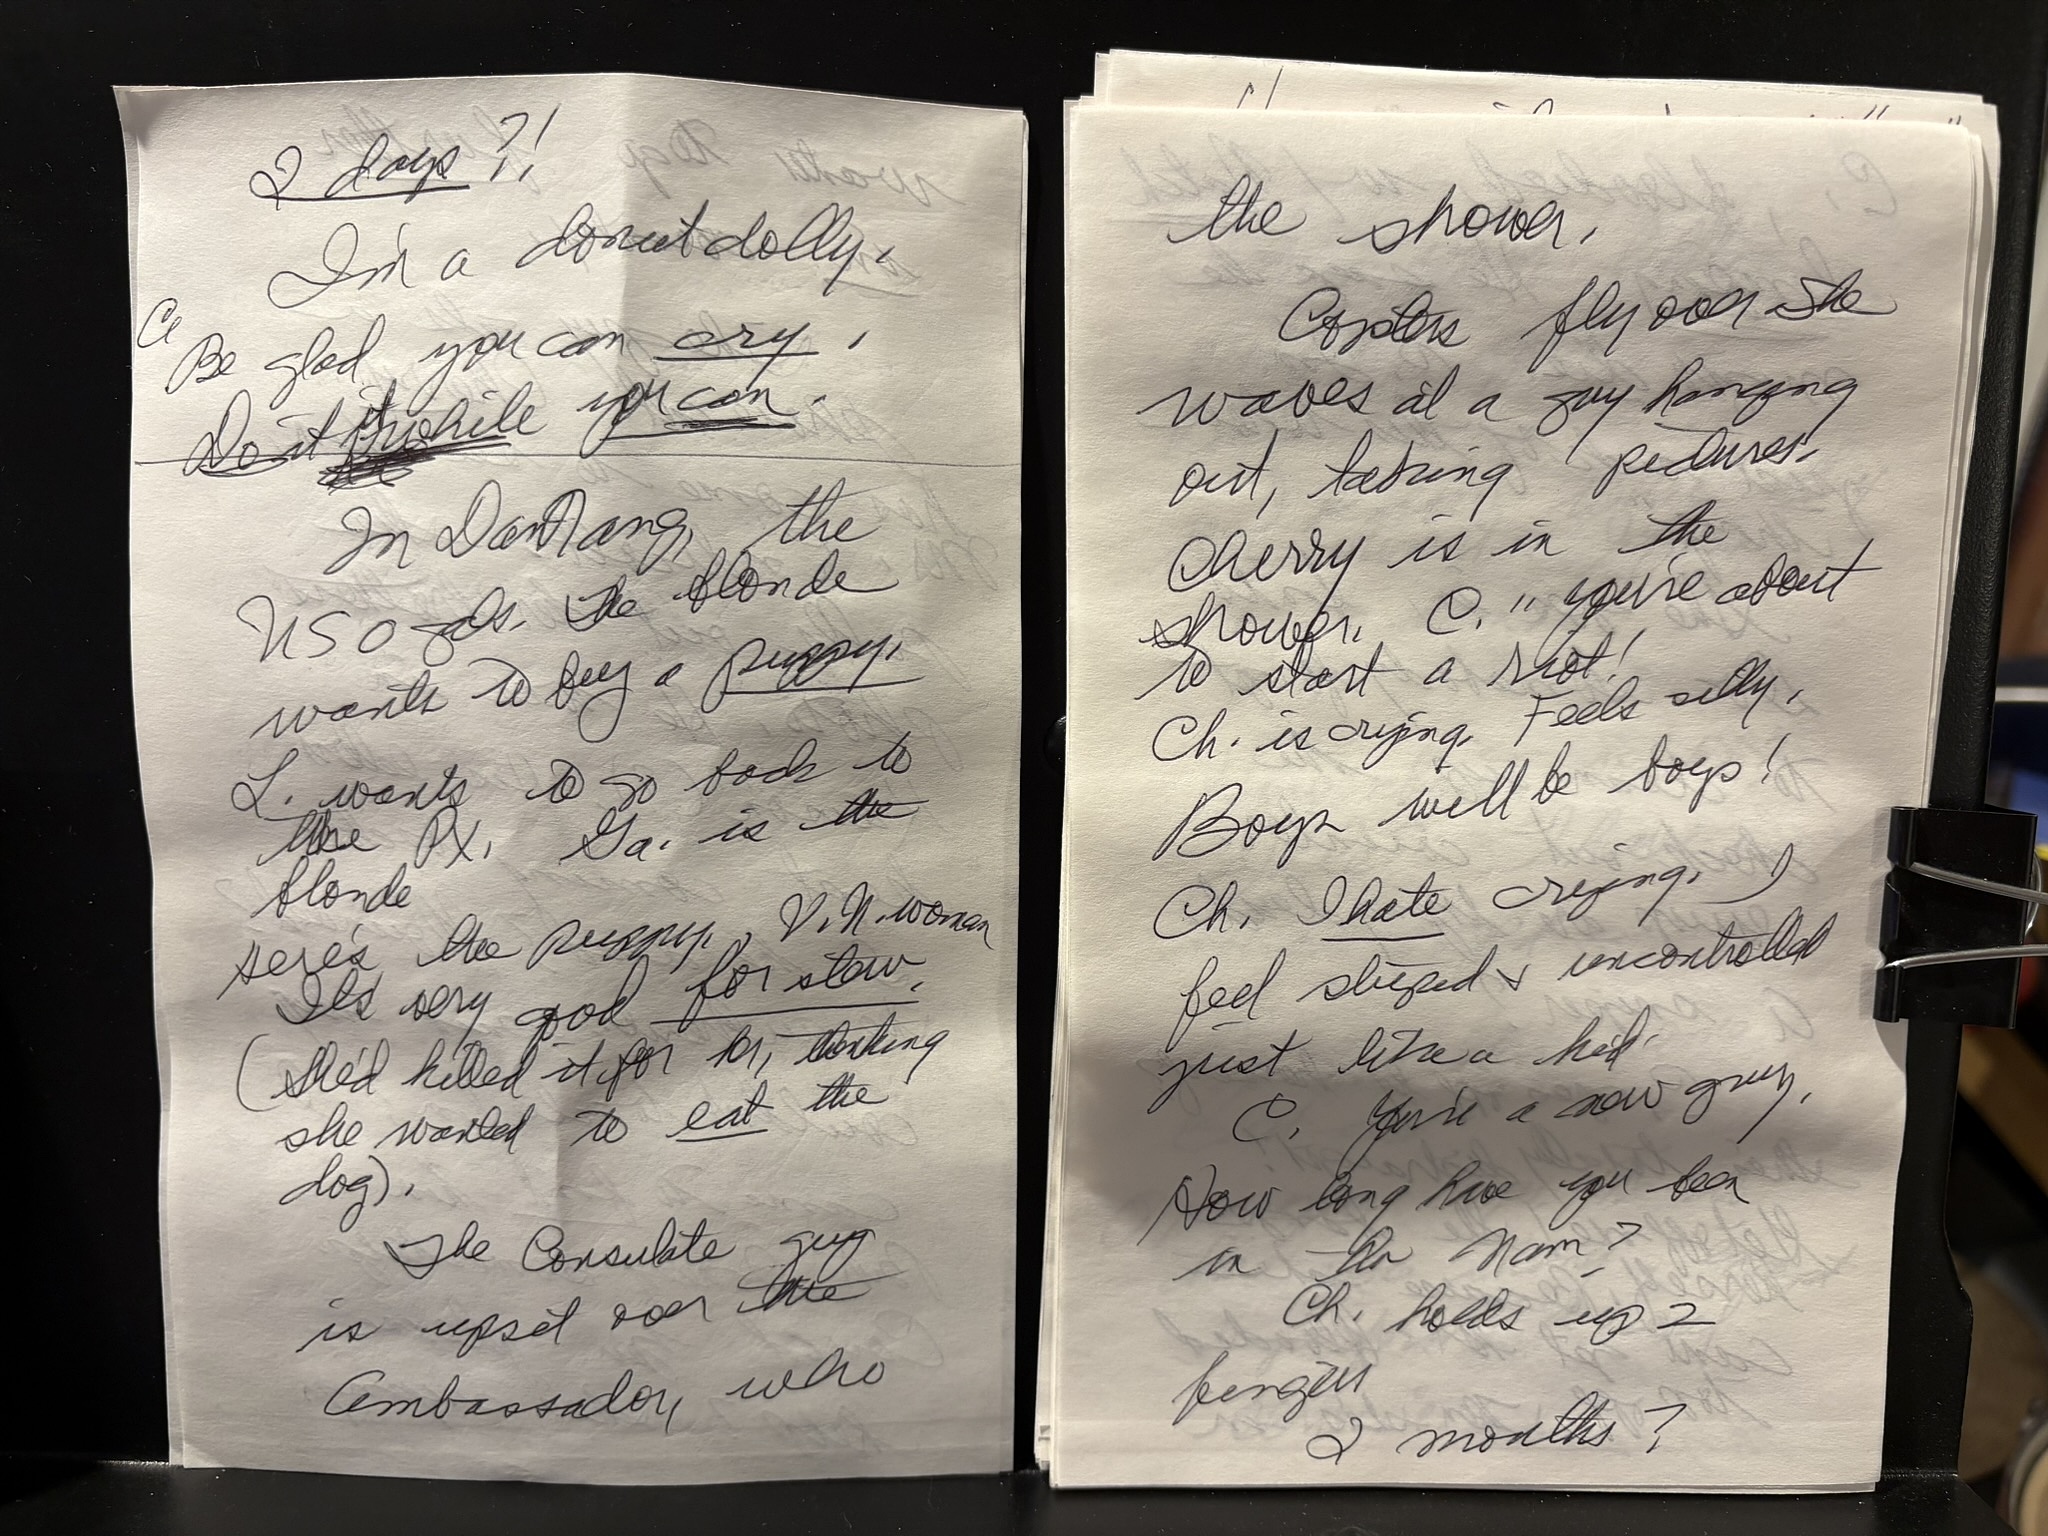 2 days?!
I'm a donutdolly.
C
Be glad you can cry.
Do it while you can.
In DaNang, the
USO gals. The blonde
wants to buy a puppy.
L. wants to go back to
the PX. Ga. is the
blonde
Here's the puppy. V.N. woman
It's very good for stew.
(She'd killed it for her, thinking
she wanted to eat the
dog).
The Consulate guy
is upset over the
Ambassador, who
the shower.
Copters fly over She
waves at a guy hanging
out, taking pictures.
Cherry is in the
shower. C. "you're about
to start a riot!
Ch. is crying. Feels silly.
Boys will be boys!
Ch. I hate crying. I
feel stupid & uncontrolled
just like a kid.
C. You're a new guy.
How long have you been
in the Nam?
Ch. holds up 2
fingers
2 months?